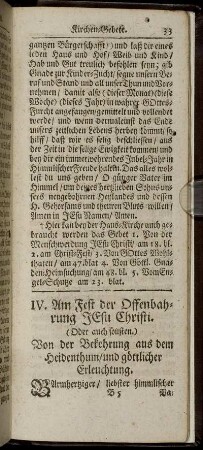 Kirchen-Gebete. 33
gantzen Bürgerschafft) und laß dir eines
ieden Hauß und Hof / Weib und Kind /
Hab und Gut treulich befohlen seyn; gib
Gnade zur Kinder-Zucht / segne unsern Be-
ruf und Stand und all unser Thun und Vor-
nehmen / damit also (dieser Monat) (diese
Woche) (dieses Jahr) in wahrer GOttes-
Furcht angefangen / gemittelt und vollendet
werde / und wenn dermaleinst das Ende
unsers zeitlichen Lebens herbey kommt / so
hilff / daß wir es selig beschliessen / aus
der Zeit in die selige Ewigkeit kommen und
bey dir ein immerwehrendes Jubel-Jahr in
Himmlischer Freude halten. Das alles wolst
du uns geben / O gütiger Vater im
Himmel / um deines hertzlieben Sohns un-
sers neugebohrnen Heylandes und dessen
H. Gehorsams und theuren Bluts willen /
Amen in JEsu Namen / Amen.
Hier kan bey der Hauß-Kirche auch ge-
braucht werden das Gebet 1. Von der
Menschwerdung JEsu Christi / am 18. bl.
2. am Christ-Fest 3. Von GOttes Wohl-
thaten / am 47. blat 4. Von Göttl. Gna-
den-Heimsuchung / am 48. bl. 5. Vom En-
gel-Schutze am 23. blat.
IV. Am Fest der Offenbah-
rung JEsu Christi.
(Oder auch sonsten.)
Von der Bekehrung aus dem
Heidenthum / und göttlicher
Erleuchtung.
BArmhertziger / liebster himmlischer
B 5 Va-